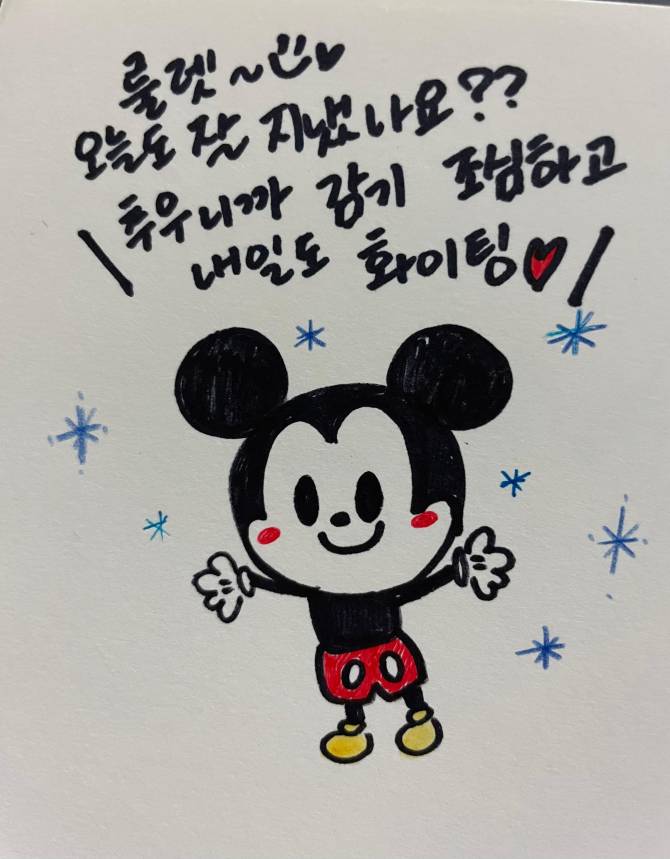 룰렛~
오늘도 잘 지냈나요??
추우니까 감기 조심하고
내일도 화이팅